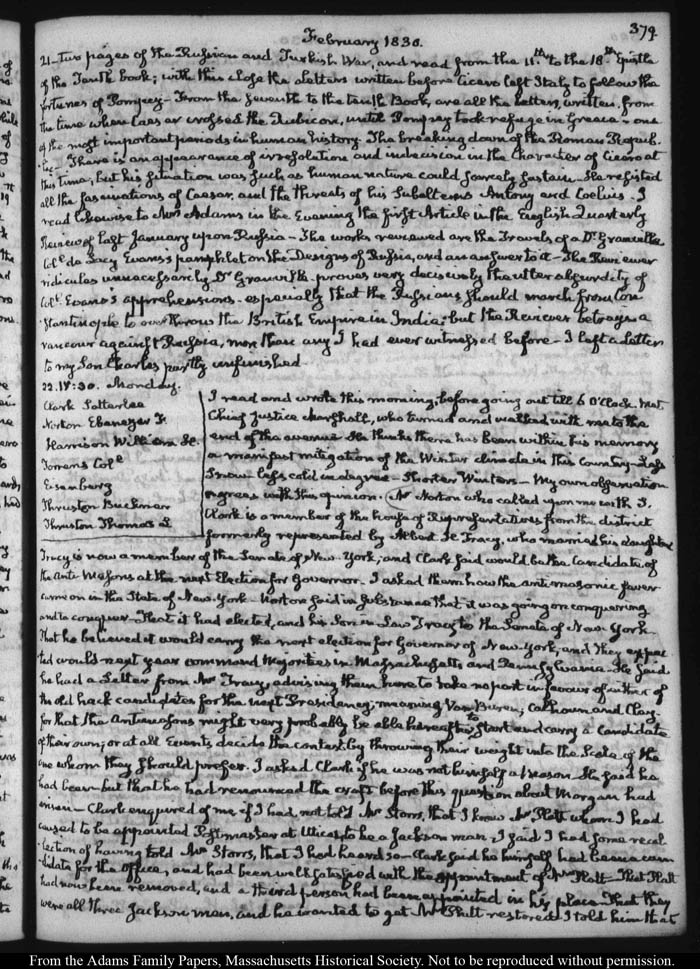 379
February 1830.
21 - Two pages of the Russian and Turkish War, and read from the 11.th to the 18.th Epistle
of the Tenth book; with this close the Letters written before Cicero left Italy to follow the
fortunes of Pompey - From the seventh to the tenth Book, are all the letters, written, from
the time when Caesar crossed the Rubicon, until Pompey took refuge in Greece - one
of the most important periods in human history. The breaking down of the Roman Repub-
-lic. There is an appearance of irresolution and indecision in the Character of Cicero at
this time, but his situation was such as human nature could scarcely sustain. He resisted
all the fascinations of Caesar, and the threats of his Subalterns Antony and Coelius. I
read likewise to Mrs Adams in the Evening the first Article in the English Quarterly
Review of last January upon Russia - The works reviewed are the Travels of a Dr. Granville
Col.l de Lacy Evans's pamphlet on the Designs of Russia, and an answer to it - The Reviewer
ridicules unnecessarily Dr Granville - proves very decisively the utter absurdity of
Col.l Evans's apprehensions - especially that the Russians should march from Con-
-stantinople to overthrow the British Empire in India; but the Reviewer betrays a
rancour against Russia, more than any I had ever witnessed before - I left a Letter
to my Son Charles partly unfinished.
22. IV:30. Monday.
Clark Satterlee
Norton Ebenezer F.
Harrison William H.
Torrens Col.l
Eisenberg
Thruston Buckner
Thruston Thomas L
I read and wrote this morning, before going out till 6 O'Clock. Met
Chief Justice Marshall, who turned and walked with me to the
end of the avenue. He thinks there has been within his memory
a manifest mitigation of the Winter climate in this Country - Less
Snow less cold in degree - Shorter Winters - My own observation
agrees with this opinion. Mr Norton who called upon me with S.
Clark is a member of the house of Representatives from the district
formerly represented by Albert H. Tracy, who married his daughter
Tracy is now a member of the Senate of New York, and Clark said would be the Candidate of
the Anti-Masons at the next Election for Governor. I asked them how the antimasonic fever
came on in the State of New York. Norton said in substance that it was going on conquering
and to conquer - That it had elected, and his Son in Law Tracy to the Senate of New York
That he believed it would carry the next election for Governor of New York, and they expec-
ted would next year command Majorities in Massachusetts and Pennsylvania. He said
he had a Letter from Mr Tracy, advising them here to take no part in favour of either of
the old hack candidates for the next Presidency; meaning Van Buren, Calhoun and Clay -
for that the Antimasons might very probably be able hereafter to start and carry a Candidate
of their own; or at all Events decide the contest by throwing their weight into the Scale of the
one whom they should prefer. I asked Clark if he was not himself a Mason. He said he
had been but that he had renounced the craft before this question about Morgan had
arisen - Clark enquired of me if I had not told Mr Storrs, that I knew Mr Platt whom I had
caused to be appointed Postmaster at Utica, to be a Jackson man. I said I had some recol-
-lection of having told Mr Storrs, that I had heard so - Clark said he himself had been a can-
-didate for the Office, and had been well satisfied with the appointment of Mr Platt - That Platt
had now been removed, and a third person had been appointed in his place - That they
were all three Jackson men, and he wanted to get Mr Platt restored. I told him that
From the Adams Family Papers, Massachusetts Historical Society. Not to be reproduced without permission.